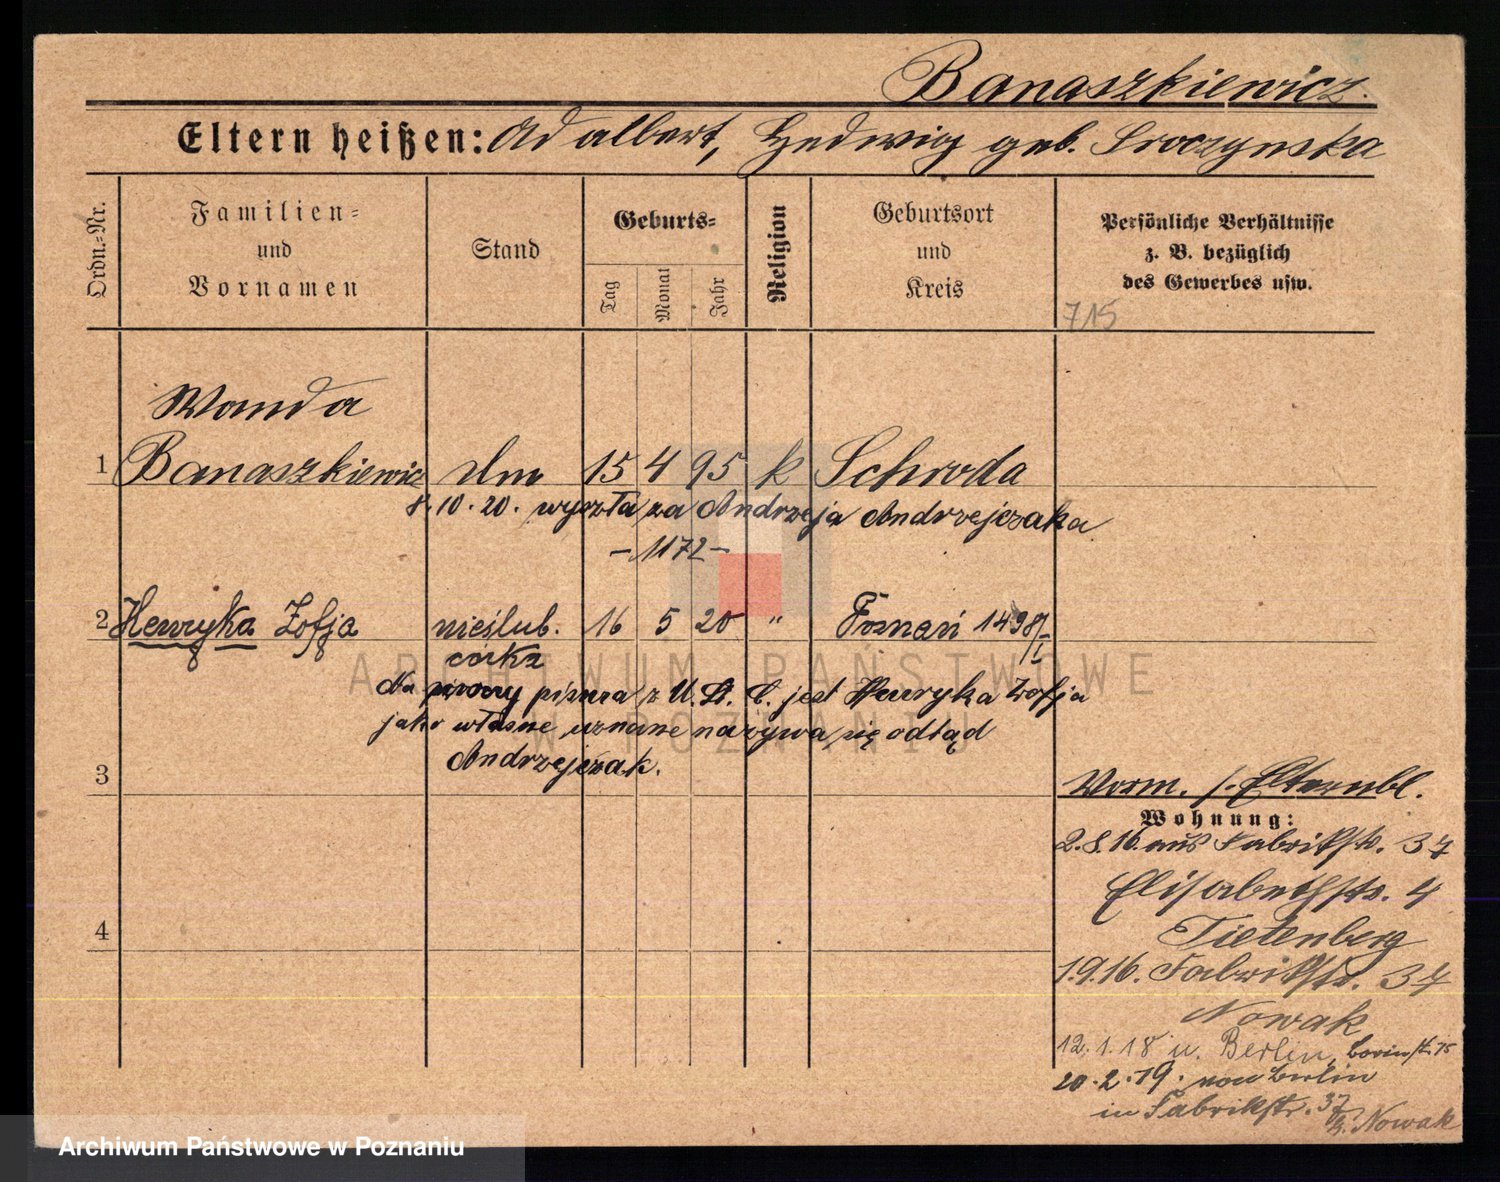 Banaszkiewicz.
Eltern heißen: Adalbert, Hedwig geb. Sroczynska
Ordn.=Nr.
Familien=
und
Vornamen
Stand
Geburts=
Tag
Monat
Jahr
Religion
Geburtsort
und
Kreis
Persönliche Verhältnisse
z. B. bezüglich
des Gewerbes usw.
715
Wanda
1 Banaszkiewicz 15 4 95 k Schroda
8.10.20. wyszła za Andrzeja Andrzejczaka
- 1172 -
2 Henryka Zofja nieślub. 16 5 20 " Poznań 1498/I
córka
Na pisma z U. St. C. jest Henryka Zofja
jako własne uznane nazywa się odtąd
Andrzejczak.
3
4
Vorm. s. Elternbl.
Wohnung:
2.8.16. aus Fabrikstr. 37
Elisabethstr. 4
Tietenberg
1.9.16. Fabrikstr. 37
Nowak
12.1.18 n. Berlin, 75
20.2.19. von Berlin
in Fabrikstr. 37
b. Nowak
ARCHIWUM PAŃSTWOWE
W POZNANIU
Archiwum Państwowe w Poznaniu